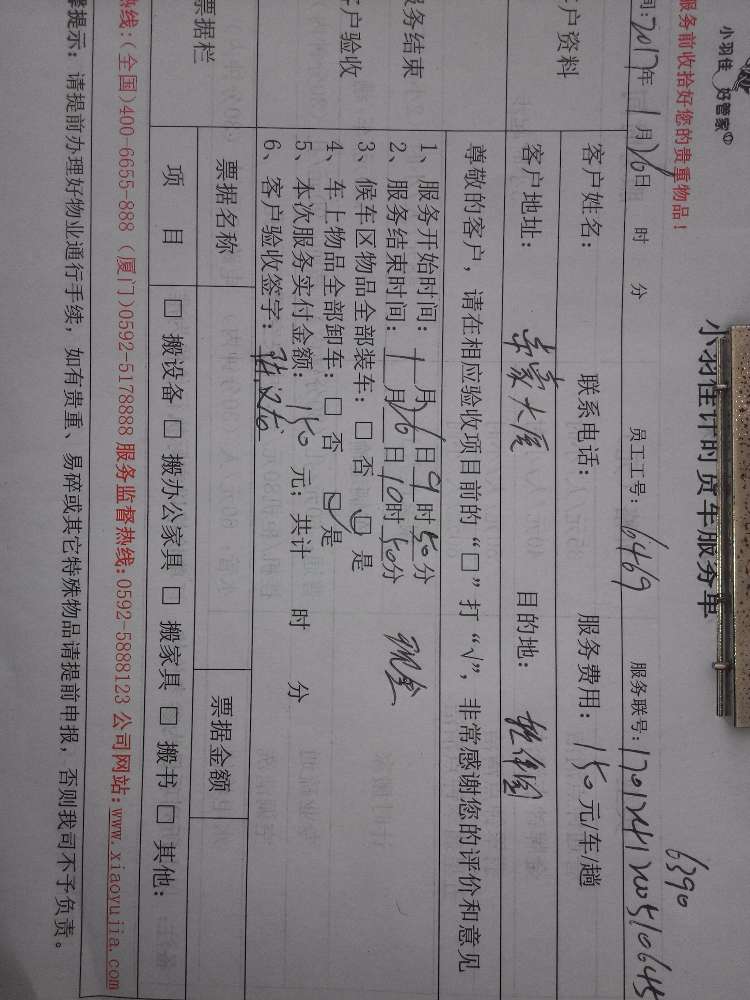 小羽佳 好管家
小羽佳计时货车服务单
6390
服务前收拾好您的贵重物品!
间:2017年1月26日 时 分 员工工号:6469 服务联号:
户资料
客户姓名: 联系电话: 服务费用:150元/车/趟
客户地址: 大厦 目的地: 软件园
尊敬的客户,请在相应验收项目前的“□”打“√”,非常感谢您的评价和意见
务结束
户验收
1、服务开始时间:1月26日9时50分
2、服务结束时间:1月26日10时50分 现金
3、候车区物品全部装车:□ 否 □ 是
4、车上物品全部卸车:□ 否 □ 是
5、本次服务实付金额:150元;共计 时 分
6、客户验收签字:
票据栏
票据名称 票据金额
项 目 □ 搬设备 □ 搬办公家具 □ 搬家具 □ 搬书 □ 其他:
热线:(全国)400-6655-888 (厦门)0592-5178888 服务监督热线:0592-5888123 公司网站:www.xiaoyujia.com
提示:请提前办理好物业通行手续,如有贵重、易碎或其它特殊物品请提前申报,否则我司不予负责。